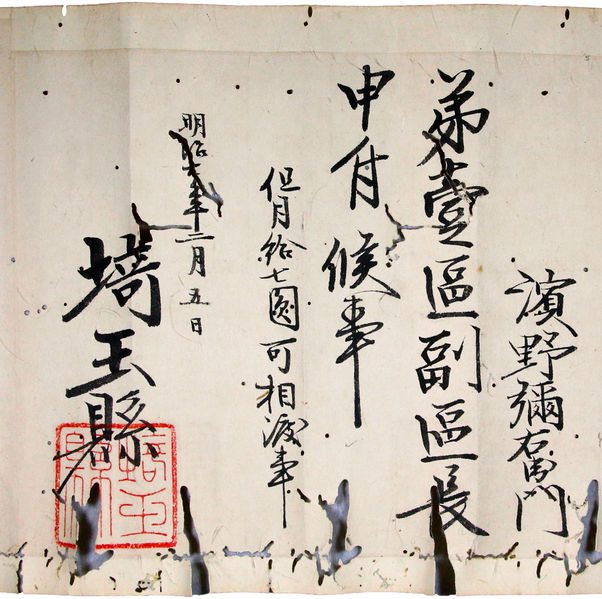 濱野彌右衛門
弟壹區副區長
申付候事
但月給七圓可相渡事
明治七年二月五日
埼玉縣
埼玉縣印